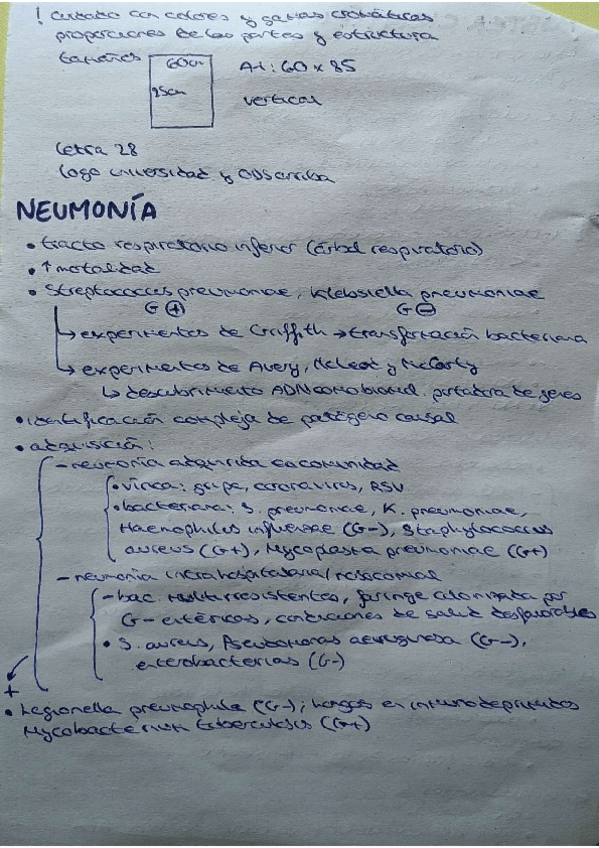 ! cuidado con colores y gamas cromáticas
proporciones de las partes y estructura
tamaños 60cm A1: 60 x 85
85cm vertical
letra 28
logo universidad y ODS arriba
NEUMONÍA
• tracto respiratorio inferior (árbol respiratorio)
• ↑ mortalidad
• Streptococcus pneumoniae, Klebsiella pneumoniae
G ⊕ G ⊖
↳ experimentos de Griffith → transformación bacteriana
↳ experimentos de Avery, McLeod y McCarty
↳ descubrimiento ADN como biomol. portadora de genes
• identificación compleja de patógeno causal
• adquisición:
- neumonía adquirida en comunidad
• vírica: gripe, coronavirus, RSV
• bacteriana: S. pneumoniae, K. pneumoniae,
Haemophilus influenzae (G-), Staphylococcus
aureus (G+), Mycoplasma pneumoniae (G+)
- neumonía intrahospitalaria/nosocomial
- bac. multirresistentes, faringe colonizada por
G- entéricos, condiciones de salud desfavorables
• S. aureus, Pseudomonas aeruginosa (G-),
enterobacterias (G-)
+
• Legionella pneumophila (G-); hongos en inmunodeprimidos
Mycobacterium tuberculosis (G+)